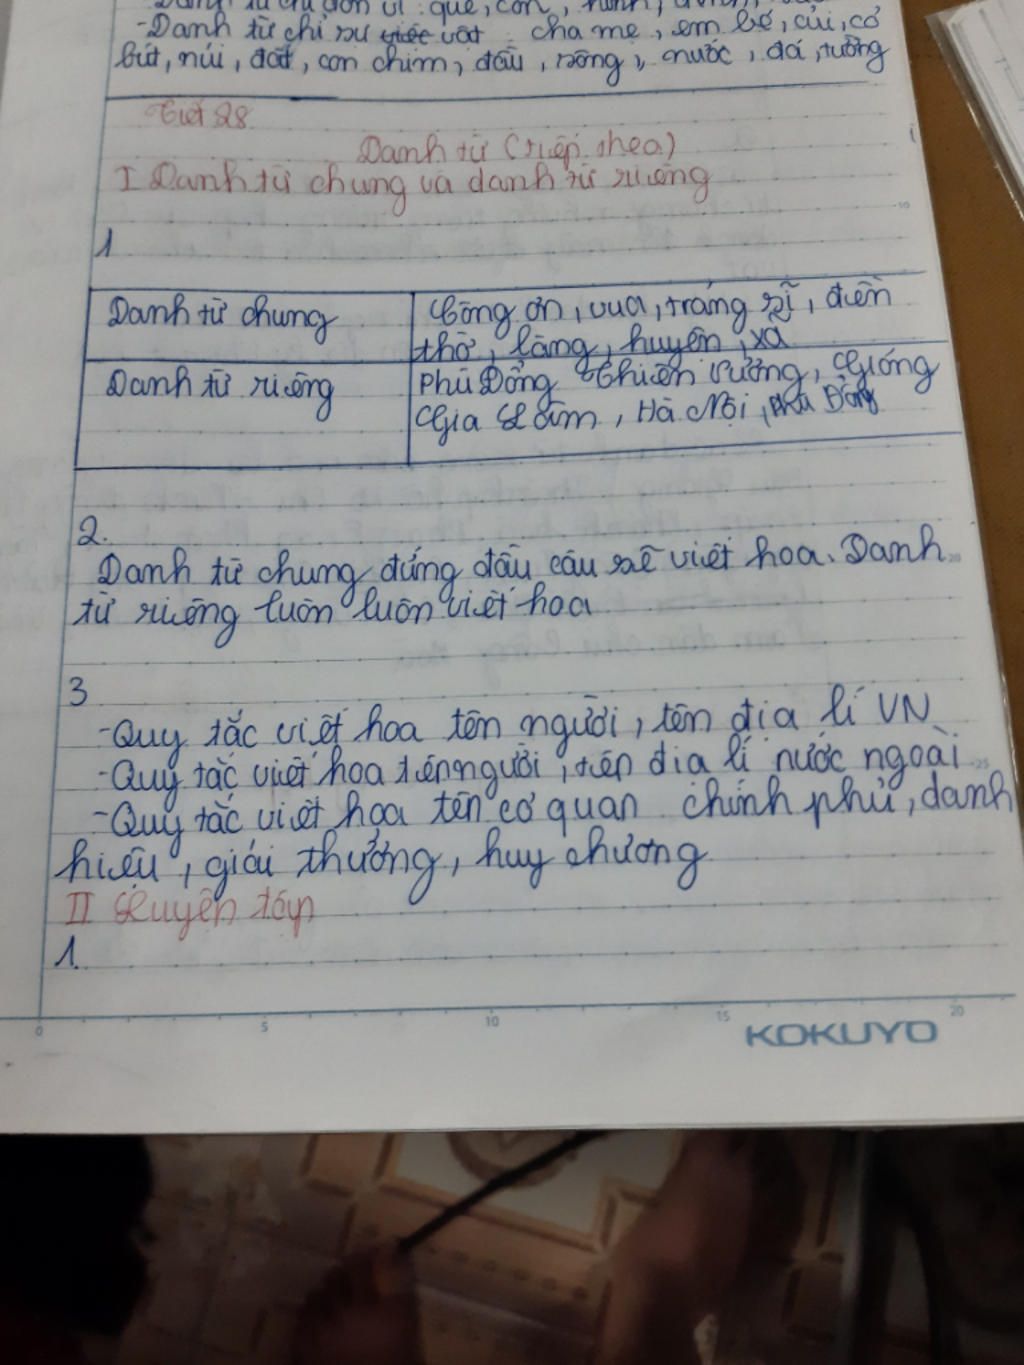 - Danh từ chỉ sự việc vật : cha mẹ, em bé, củi, cỏ
bút, núi, đất, con chim, đầu, rồng, nước, đá, tường
Tiết 28
Danh từ (tiếp theo)
I Danh từ chung và danh từ riêng
1
Danh từ chung
Công ơn, vua, tráng sĩ, điền
thờ, làng, huyện, xã
Danh từ riêng
Phù Đổng Thiên Vương, Gióng
Gia Lâm, Hà Nội, Phù Đổng
2.
Danh từ chung đứng đầu câu sẽ viết hoa. Danh
từ riêng luôn luôn viết hoa
3
- Quy tắc viết hoa tên người, tên địa lí VN
- Quy tắc viết hoa tên người, tên địa lí nước ngoài
- Quy tắc viết hoa tên cơ quan chính phủ, danh
hiệu, giải thưởng, huy chương
II Luyện tập
1.
0 5 10 15 20
KOKUYO